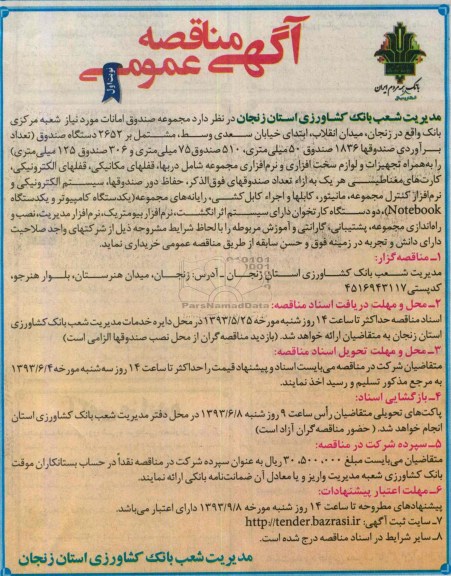 آگهی مناقصه
عمومی
نوبت اول
مدیریت شعب بانک کشاورزی استان زنجان در نظر دارد مجموعه صندوق امانات مورد نیاز شعبه مرکزی
بانک واقع در زنجان، میدان انقلاب، ابتدای خیابان سعدی وسط، مشتمل بر ۲۶۵۲ دستگاه صندوق (تعداد
برآوردی صندوقها ۱۸۳۶ صندوق ۵۰ میلی‌متری، ۵۱۰ صندوق ۷۵ میلی‌متری و ۳۰۶ صندوق ۱۲۵ میلی‌متری)
را به‌همراه تجهیزات و لوازم سخت افزاری و نرم‌افزاری مجموعه شامل دربها، قفلهای مکانیکی، قفلهای الکترونیکی،
کارت‌های مغناطیسی هر یک به ازاء تعداد صندوقهای فوق‌الذکر، حفاظ دور صندوقها، سیستم الکترونیکی و
نرم‌افزار کنترل مجموعه، مانیتور، کابلها و اجراء کابل‌کشی، رایانه‌های مجموعه (یکدستگاه کامپیوتر و یکدستگاه
Notebook)، دو دستگاه کارتخوان دارای سیستم اثر انگشت، نرم‌افزار بیومتریک، نرم‌افزار مدیریت، نصب و
راه‌اندازی مجموعه، پشتیبانی، گارانتی و آموزش مربوطه را با لحاظ شرایط مشروحه ذیل از شرکتهای واجد صلاحیت
دارای دانش و تجربه در زمینه فوق و حسن سابقه از طریق مناقصه عمومی خریداری نماید.
۱ـ مناقصه‌گزار:
مدیریت شعب بانک کشاورزی استان زنجان ـ آدرس: زنجان، میدان هنرستان، بلوار هنرجو،
کدپستی ۴۵۱۶۹۴۳۱۱۷
۲ـ محل و مهلت دریافت اسناد مناقصه:
اسناد مناقصه حداکثر تا ساعت ۱۴ روز شنبه مورخه ۱۳۹۳/۵/۲۵ در محل دایره خدمات مدیریت شعب بانک کشاورزی
استان زنجان به متقاضیان ارائه خواهد شد. (بازدید مناقصه‌گران از محل نصب صندوقها الزامی است)
۳ـ محل و مهلت تحویل اسناد مناقصه:
متقاضیان شرکت در مناقصه می‌بایست اسناد و پیشنهاد قیمت را حداکثر تا ساعت ۱۴ روز سه‌شنبه مورخه ۱۳۹۳/۶/۴
به مرجع مذکور تسلیم و رسید اخذ نمایند.
۴ـ بازگشایی اسناد:
پاکت‌های تحویلی متقاضیان رأس ساعت ۹ روز شنبه ۱۳۹۳/۶/۸ در محل دفتر مدیریت شعب بانک کشاورزی استان
انجام خواهد شد. (حضور مناقصه‌گران آزاد است)
۵ـ سپرده شرکت در مناقصه:
متقاضیان می‌بایست مبلغ ۳۰،۵۰۰،۰۰۰ ریال به عنوان سپرده شرکت در مناقصه نقداً در حساب بستانکاران موقت
بانک کشاورزی شعبه مدیریت واریز و یا معادل آن ضمانت‌نامه بانکی ارائه نمایند.
۶ـ مهلت اعتبار پیشنهادات:
پیشنهادهای مطروحه تا ساعت ۱۴ روز شنبه مورخه ۱۳۹۳/۹/۸ دارای اعتبار می‌باشد.
۷ـ سایت ثبت آگهی: http://tender.bazrasi.ir
۸ـ سایر شرایط در اسناد مناقصه درج شده است.
مدیریت شعب بانک کشاورزی استان زنجان
ParsNamadData